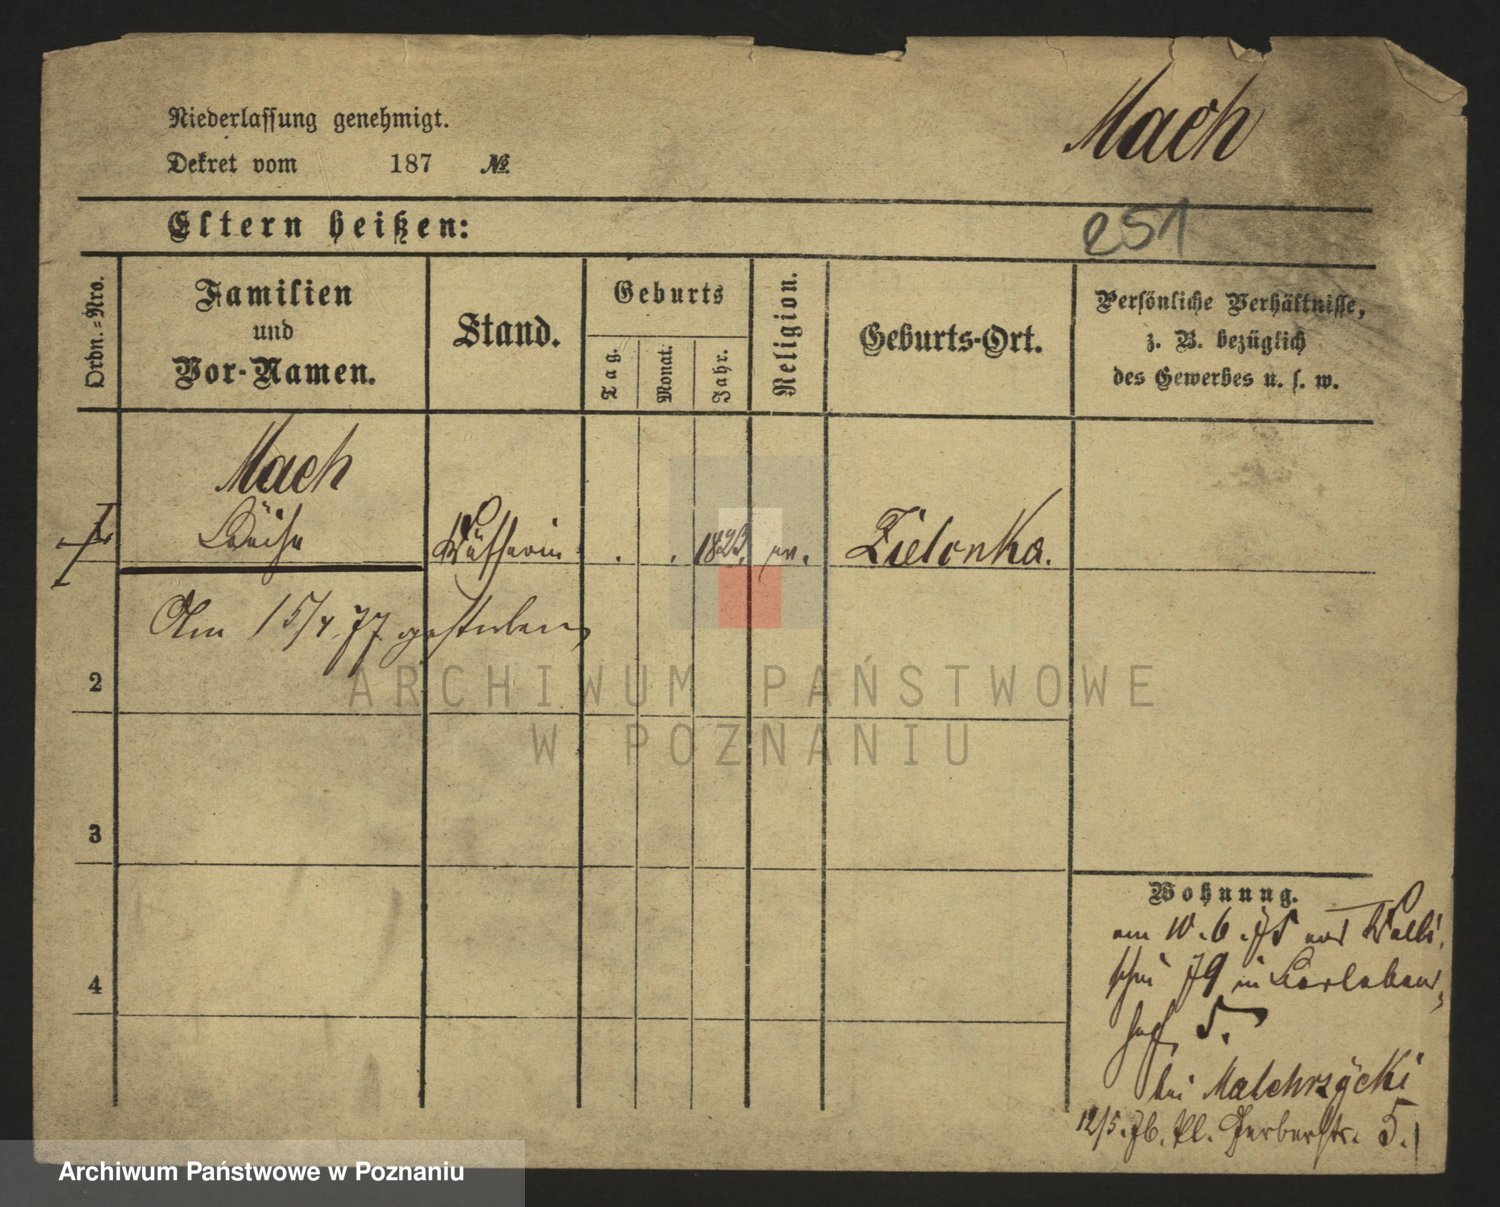 Mach
Niederlassung genehmigt.
Dekret vom 187 №
251
Eltern heißen:
Ordn.=Nro.
Familien
und
Vor-Namen.
Stand.
Geburts
Tag.
Monat.
Jahr.
Religion.
Geburts-Ort.
Persönliche Verhältnisse,
z. B. bezüglich
des Gewerbes u. s. w.
Mach
1 Luise 1823. ev. Zielonka.
Am 15/4. 77. gestorben
2
3
4
Wohnung.
am 10.6.75 von Walli
schei 79 in
hof 5.
bei Malchrzycki
12/5. 76. Kl. Gerberstr. 5.
ARCHIWUM PAŃSTWOWE
W POZNANIU
Archiwum Państwowe w Poznaniu